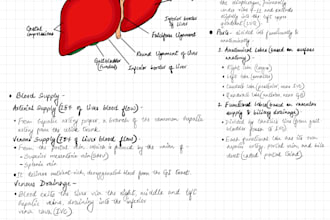 the diaphragm, primarily
slightly into the left upper
quadrant
Inferior border
of liver
Costal
impressions
Falciform ligament
Parts - divided into functionally &
anatomically
1. Anatomical Lobes (based on surface
anatomy) -
Right
Left
Caudate (posterior, near IVC)
Quadrate (inferior, near GB)
Round Ligament of liver
Gallbladder
(Fundus)
Inferior border of liver
Blood Supply -
Arterial Supply (25% of liver blood flow) -
From hepatic artery proper, a branch of the common hepatic
artery from the celiac trunk.
Venous Supply (75% of liver blood flow)
From the portal vein, which is formed by the union of -
Superior mesenteric vein (SMV)
Splenic vein
It delivers nutrient-rich, deoxygenated blood from the GI tract.
Venous Drainage -
Blood exits the liver via the right, middle and left
hepatic veins, draining into the inferior
vena cava (IVC)
2. Functional Lobes (based on vascular
supply & biliary drainage) -
Divided by Cantlie's line (from gall
bladder fossa to IVC)
Each functional lobe has its own
hepatic artery, portal vein, and bile
duct (called portal triad).